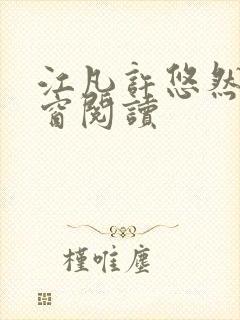 江凡許悠然
窗閱讀
槿唯塵